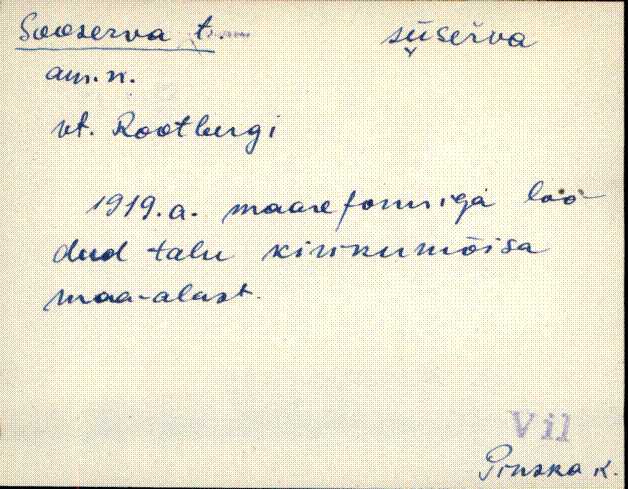 Sooserva t. süserva
am. n.
vt. Rootbergi
1919. a. maareformiga loo-
dud talu kirikumõisa
maa-alast.
Vil
Pinska k.